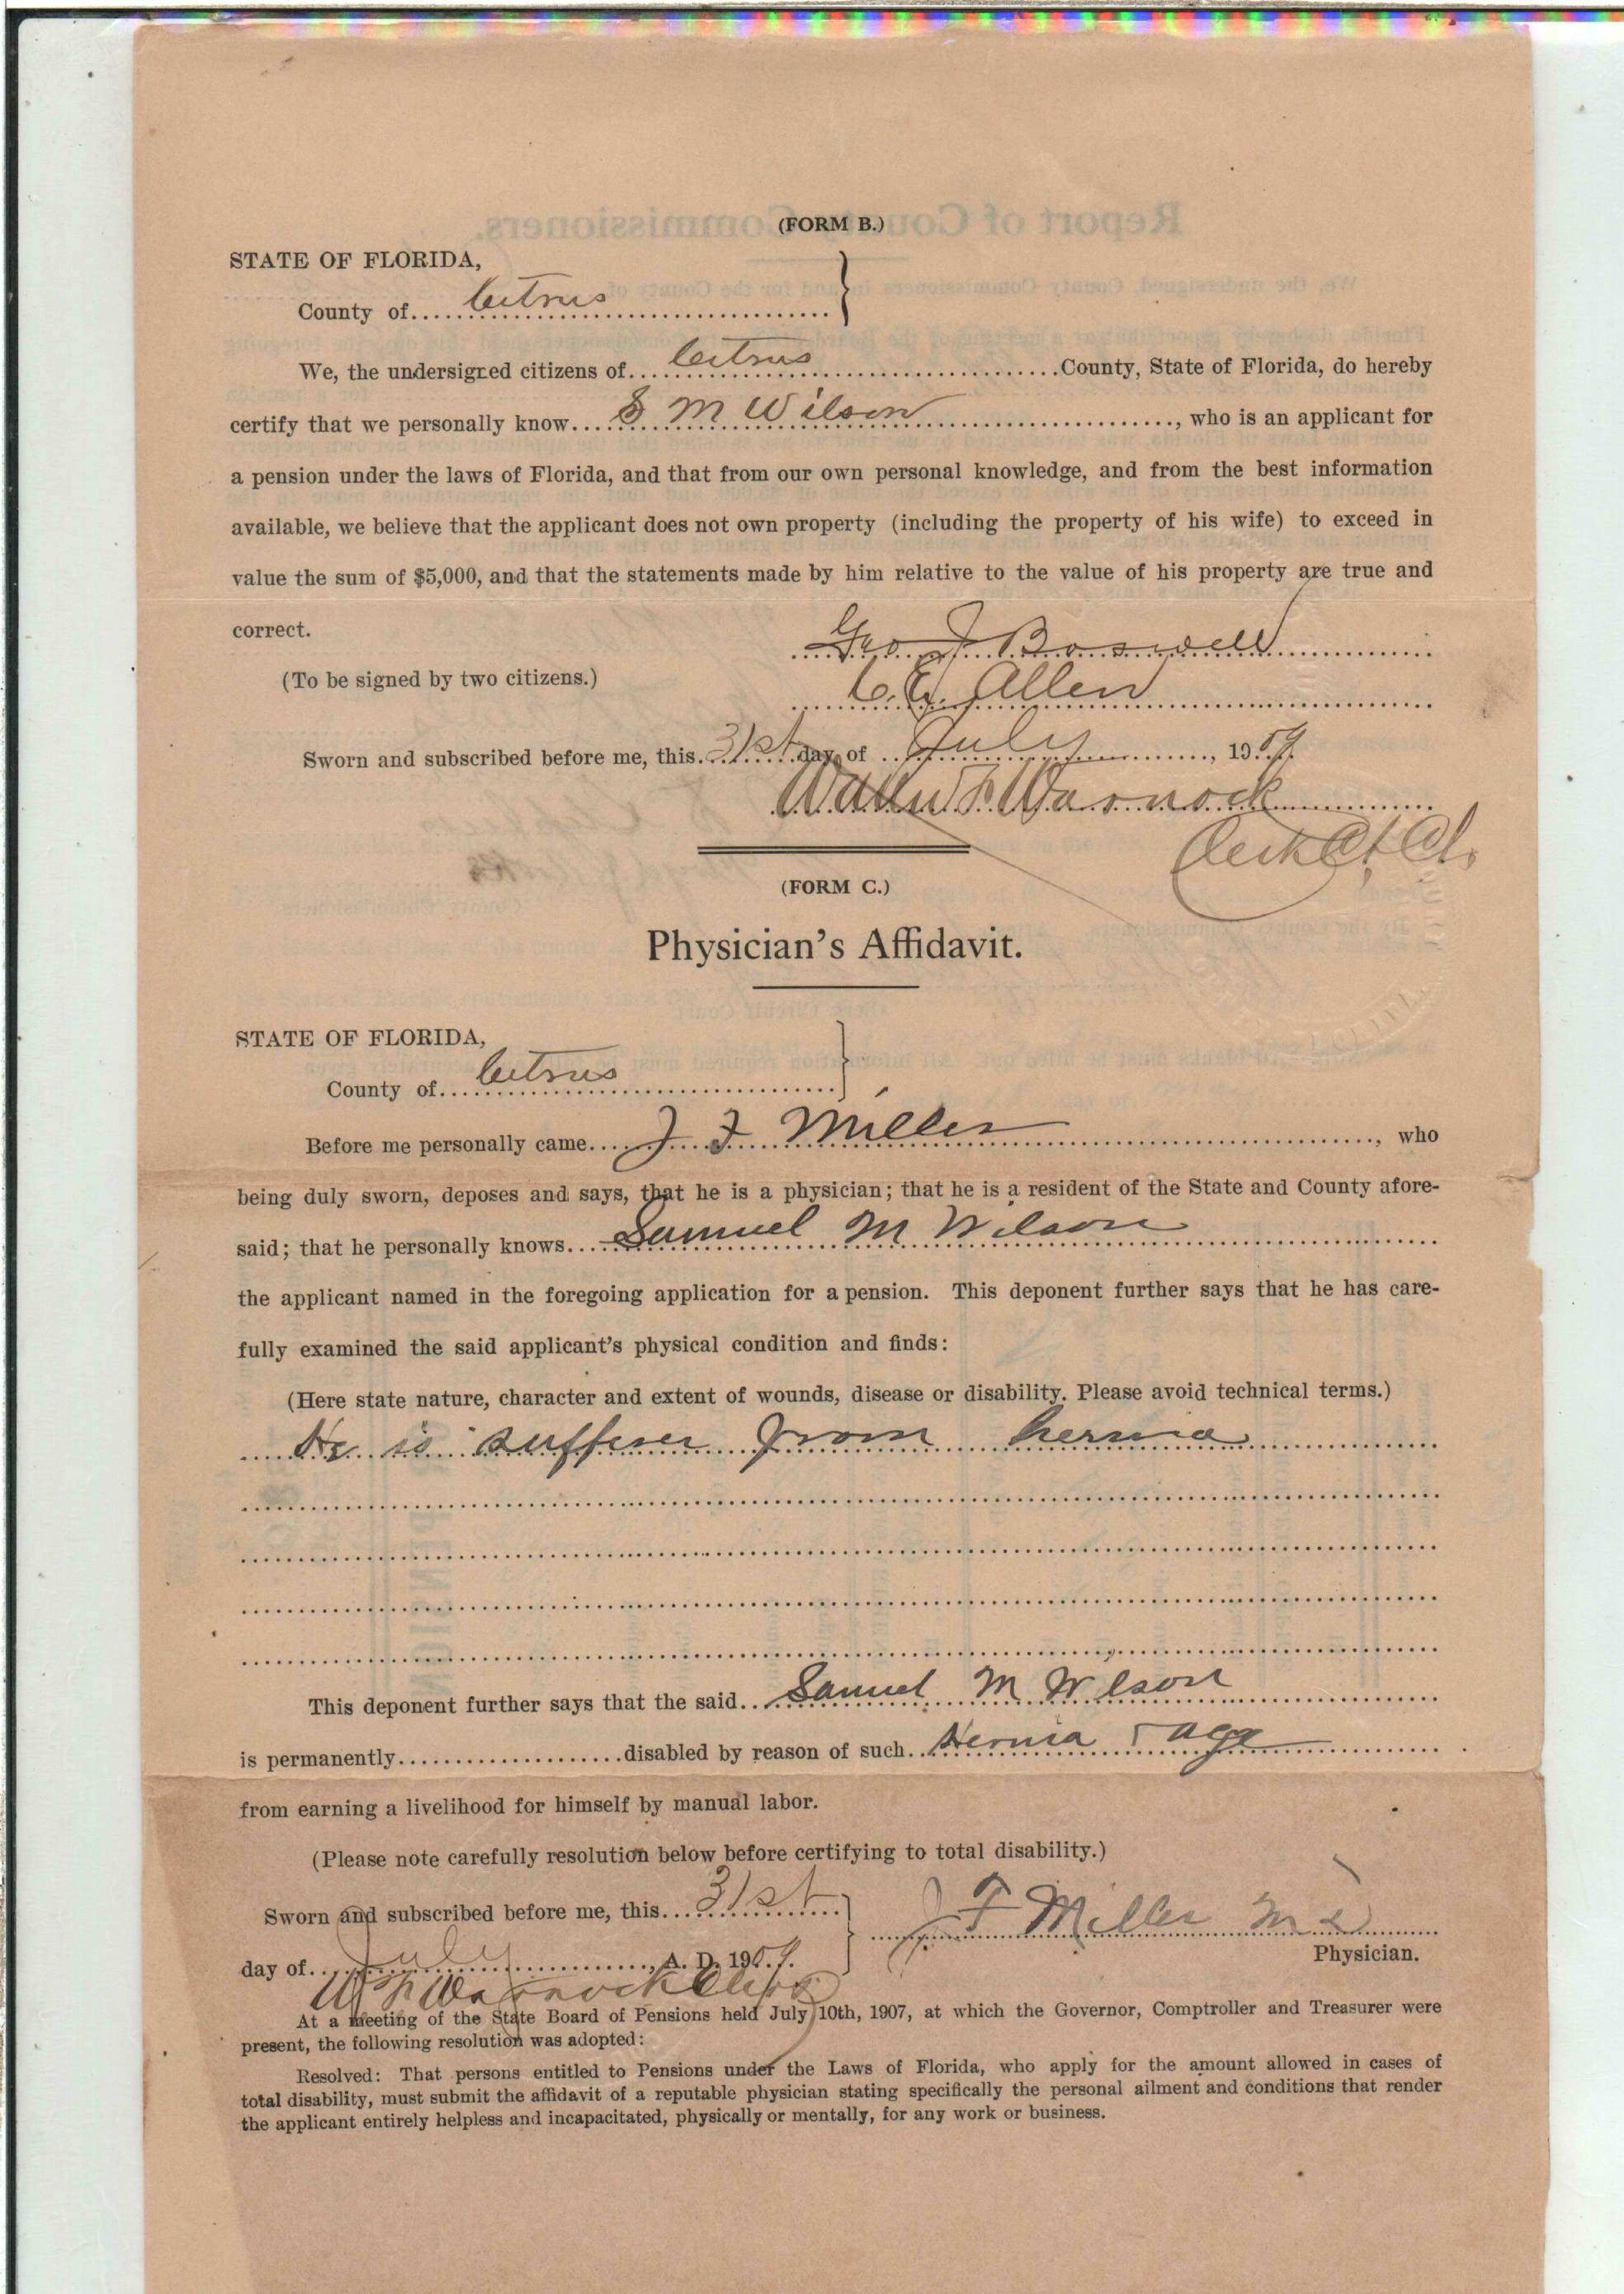 (FORM B.)
STATE OF FLORIDA,
County of Citrus
We, the undersigned citizens of Citrus County, State of Florida, do hereby
certify that we personally know S M Wilson, who is an applicant for
a pension under the laws of Florida, and that from our own personal knowledge, and from the best information
available, we believe that the applicant does not own property (including the property of his wife) to exceed in
value the sum of $5,000, and that the statements made by him relative to the value of his property are true and
correct.
Geo J Boswell
(To be signed by two citizens.)
C. E. Allen
Sworn and subscribed before me, this 31st day of July, 1909.
Walter F Warnock
Clerk Ct Ct.
(FORM C.)
Physician's Affidavit.
STATE OF FLORIDA,
County of Citrus
Before me personally came J F Miller, who
being duly sworn, deposes and says, that he is a physician; that he is a resident of the State and County afore-
said; that he personally knows Samuel M Wilson
the applicant named in the foregoing application for a pension. This deponent further says that he has care-
fully examined the said applicant's physical condition and finds:
(Here state nature, character and extent of wounds, disease or disability. Please avoid technical terms.)
He is sufferer from hernia
This deponent further says that the said Samuel M Wilson
is permanently disabled by reason of such Hernia & age
from earning a livelihood for himself by manual labor.
(Please note carefully resolution below before certifying to total disability.)
Sworn and subscribed before me, this 31st
J F Miller M D
day of July, A. D. 1909.
Physician.
W F Warnock
At a meeting of the State Board of Pensions held July 10th, 1907, at which the Governor, Comptroller and Treasurer were
present, the following resolution was adopted:
Resolved: That persons entitled to Pensions under the Laws of Florida, who apply for the amount allowed in cases of
total disability, must submit the affidavit of a reputable physician stating specifically the personal ailment and conditions that render
the applicant entirely helpless and incapacitated, physically or mentally, for any work or business.